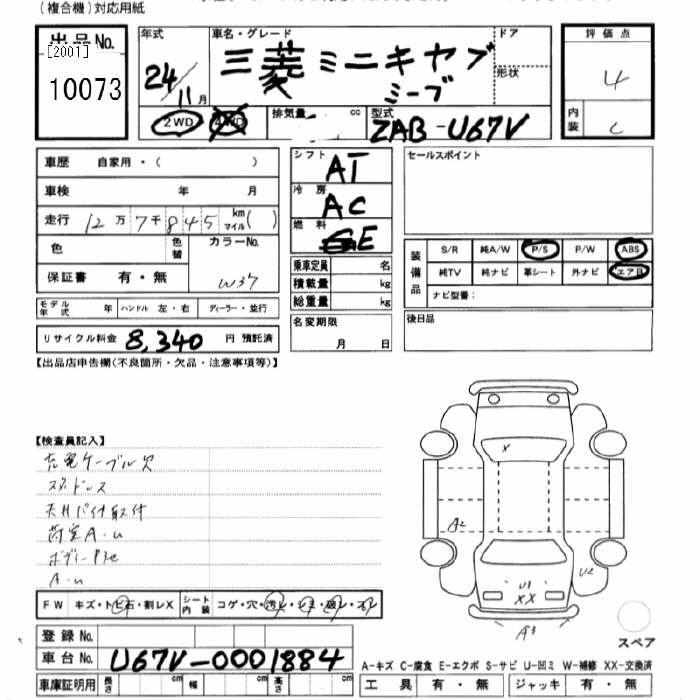 (複合機)対応用紙
出品No.
[2001]
10073
年式
24/11月
車名・グレード
三菱 ミニキヤブ
ミーブ
ドア
形状
2WD 4WD
排気量 cc
型式
ZAB-U67V
評価点
4
内装
C
車歴 自家用・( )
車検 年 月
走行 12万7千845 km マイル( )
色 色替 カラーNo.
W37
保証書 有・無
モデル年式 年 ハンドル 左・右 ディーラー・並行
リサイクル料金 8,340 円 預託済
シフト
AT
冷房
AC
燃料
E
乗車定員 名
積載量 kg
総重量 kg
名変期限
月 日
セールスポイント
装備品
S/R 純A/W P/S P/W ABS
純TV 純ナビ 革シート 外ナビ エアB
ナビ型番:
後日品
【出品店申告欄(不良箇所・欠品・注意事項等)】
【検査員記入】
充電ケーブル欠
スタドレス
天井パイ付取付
荷室A・u
ボディー
A・u
FW キズ・トビ石・割レX シート内装 コゲ・穴・汚レ・シミ・破レ・スレ
登録No.
車台No. U67V-0001884
車庫証明用 長さ cm 幅 cm 高さ cm
X
A2
U2
U1
XX
A3
スペア
A-キズ C-腐食 E-エクボ S-サビ U-凹ミ W-補修 XX-交換済
工具 有・無 ジャッキ 有・無